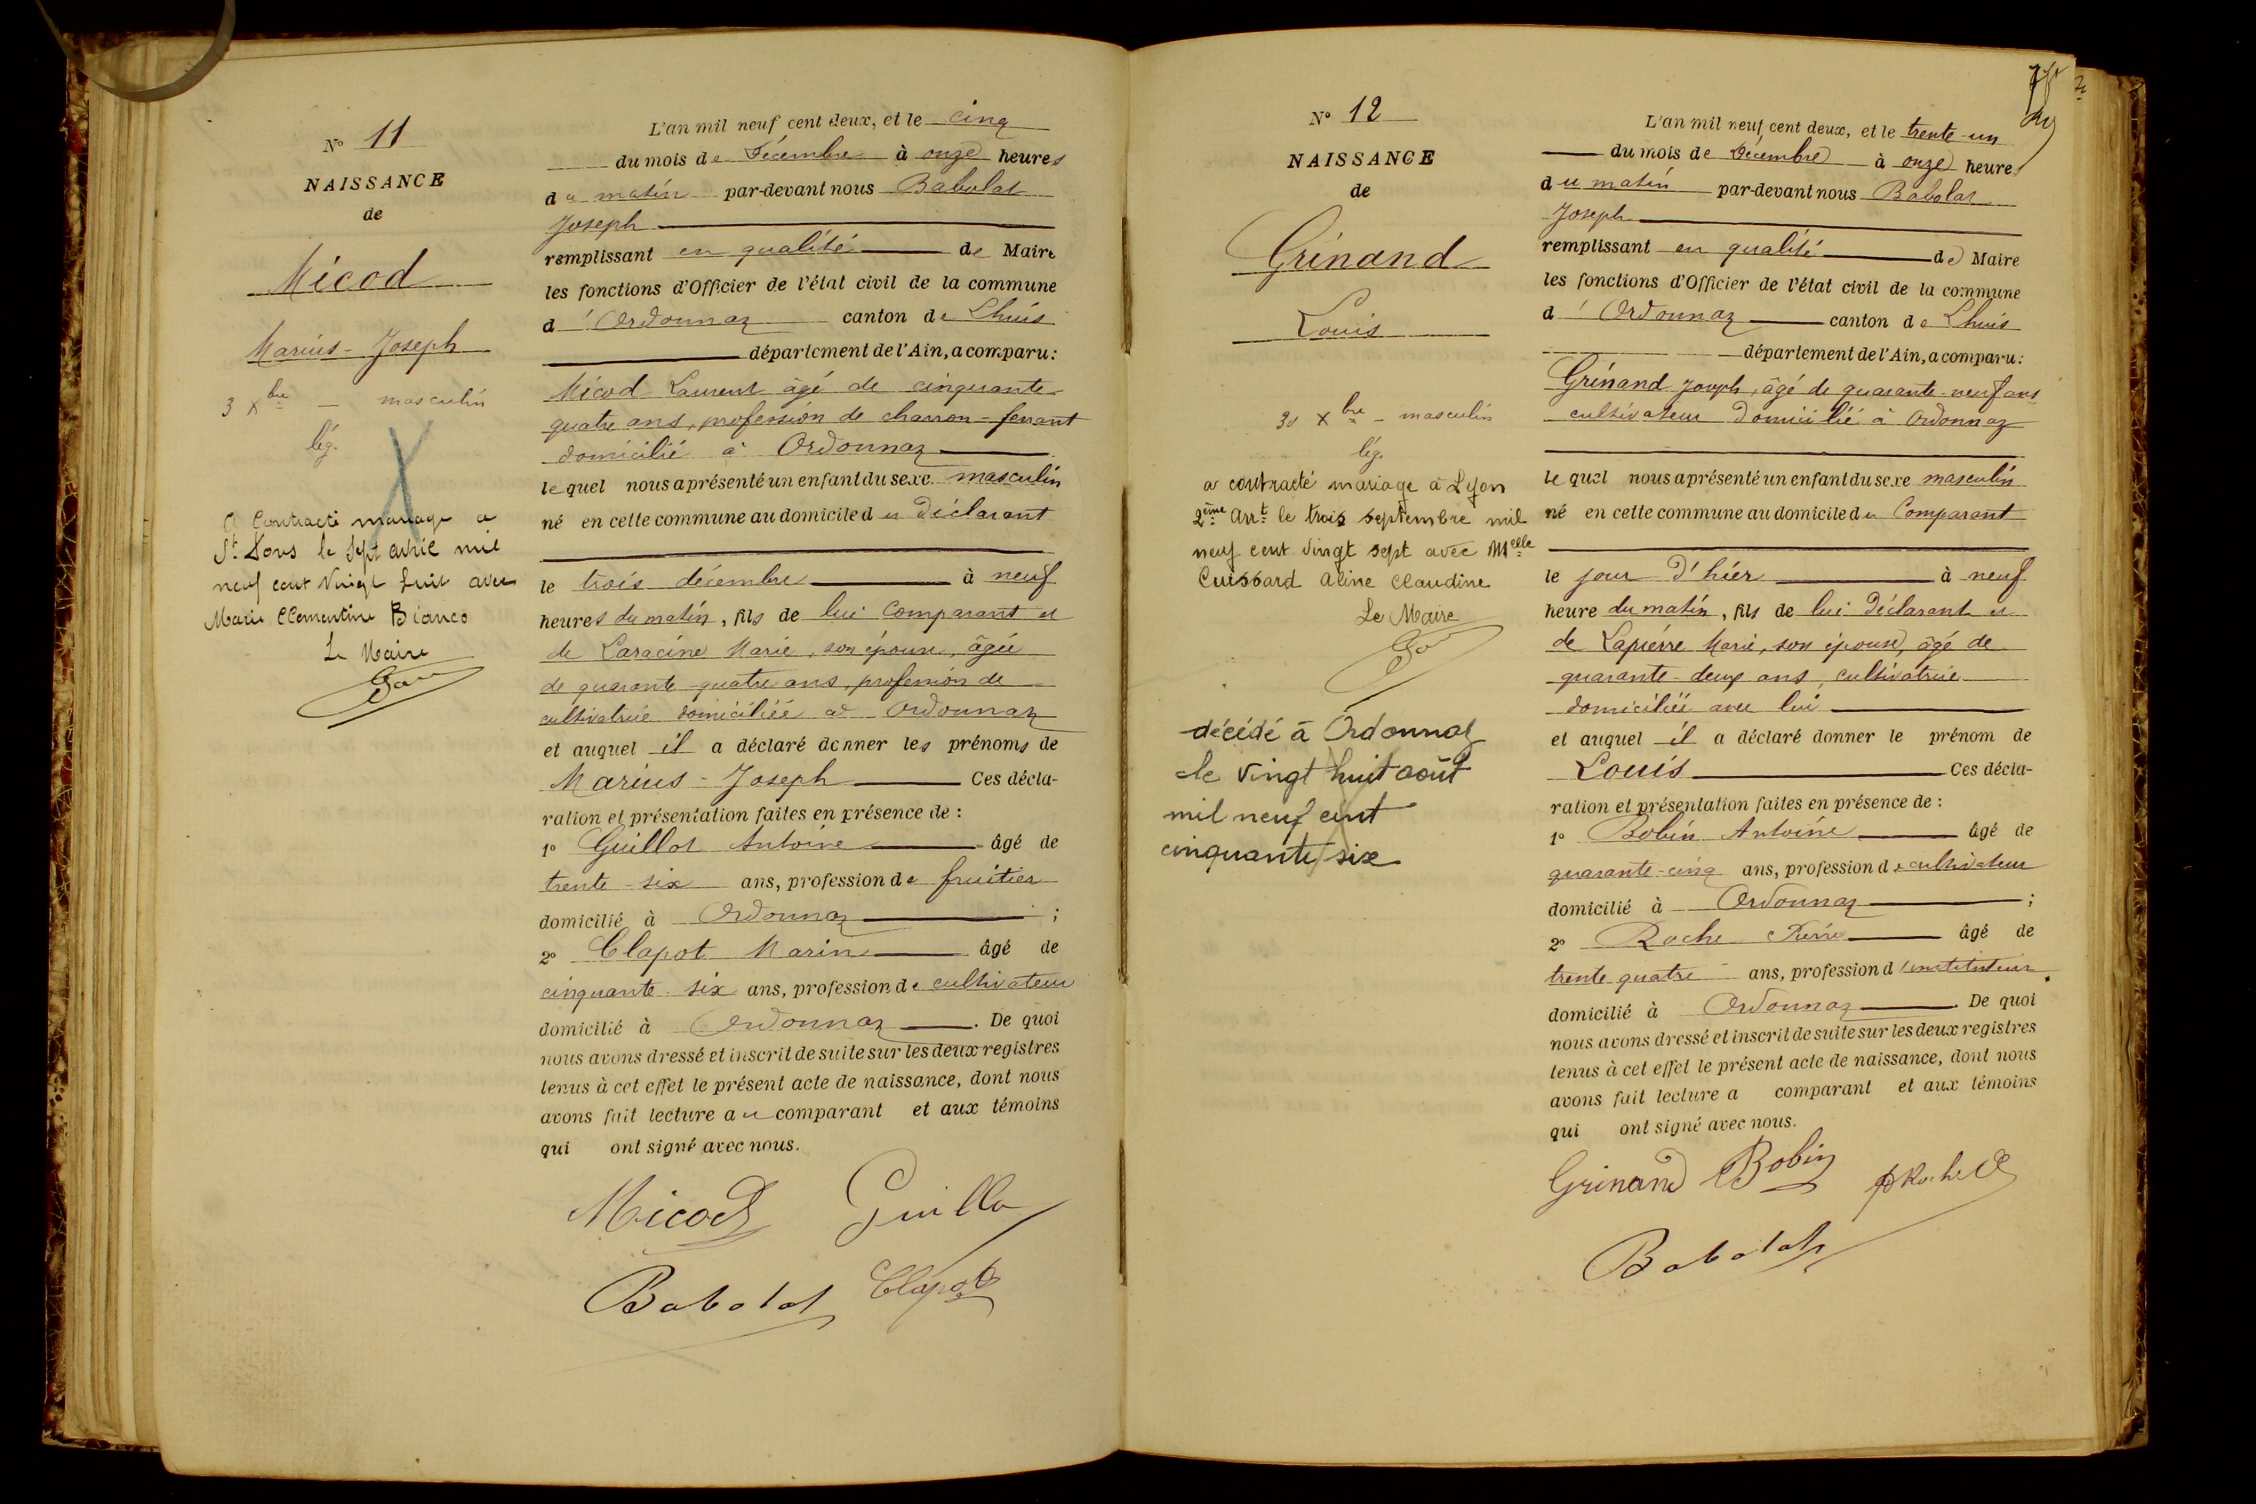 N° 11
NAISSANCE
de
Micod
Marius - Joseph
3 Xbre — masculin
lég.
A Contracté mariage a
St le sept avril mil
neuf cent vingt huit avec
Marie Clementine Bianco
Le Maire
L'an mil neuf cent deux, et le cinq
du mois de Décembre à onze heures
du matin par-devant nous Babolat
Joseph
remplissant en qualité de Maire
les fonctions d'Officier de l'état civil de la commune
d'Ordonnaz canton de Lhuis
département de l'Ain, a comparu :
Micod Laurent âgé de cinquante
quatre ans, profession de charron - ferrant
domicilié à Ordonnaz
lequel nous a présenté un enfant du sexe masculin
né en cette commune au domicile du Déclarant
le trois décembre à neuf
heures du matin, fils de lui Comparant et
de Laracine Marie, son épouse, âgée
de quarante quatre ans, profession de
cultivatrice domiciliée à Ordonnaz
et auquel il a déclaré donner les prénoms de
Marius - Joseph Ces décla-
ration et présentation faites en présence de :
1° Guillot Antoine âgé de
trente - six ans, profession de fruitier
domicilié à Ordonnaz ;
2° Clapot Marin âgé de
cinquante six ans, profession de cultivateur
domicilié à Ordonnaz. De quoi
nous avons dressé et inscrit de suite sur les deux registres
tenus à cet effet le présent acte de naissance, dont nous
avons fait lecture au comparant et aux témoins
qui ont signé avec nous.
Micod Guillo
Babolat Clapot
N° 12
NAISSANCE
de
Grinand
Louis
30 Xbre — masculin
lég.
a contracté mariage à Lyon
2ème arrt le trois septembre mil
neuf cent vingt sept avec Melle
Cuissard Aline Claudine
Le Maire
décédé à Ordonnaz
le vingt huit août
mil neuf cent
cinquante six
L'an mil neuf cent deux, et le trente-un
du mois de Décembre à onze heures
du matin par-devant nous Babolat
Joseph
remplissant en qualité de Maire
les fonctions d'Officier de l'état civil de la commune
d'Ordonnaz canton de Lhuis
département de l'Ain, a comparu :
Grinand Joseph, âgé de quarante-neuf ans
cultivateur Domicilié à Ordonnaz
lequel nous a présenté un enfant du sexe masculin
né en cette commune au domicile du Comparant
le jour d'hier à neuf
heure du matin, fils de lui Déclarant et
de Lapierre Marie, son épouse, âgé de
quarante - deux ans, cultivatrice
domiciliée avec lui
et auquel il a déclaré donner le prénom de
Louis Ces décla-
ration et présentation faites en présence de :
1° Bobin Antoine âgé de
quarante-cinq ans, profession de cultivateur
domicilié à Ordonnaz ;
2° Roche Pierre âgé de
trente quatre ans, profession d'instituteur
domicilié à Ordonnaz. De quoi
nous avons dressé et inscrit de suite sur les deux registres
tenus à cet effet le présent acte de naissance, dont nous
avons fait lecture a comparant et aux témoins
qui ont signé avec nous.
Grinand Bobin PRoche
Babolat